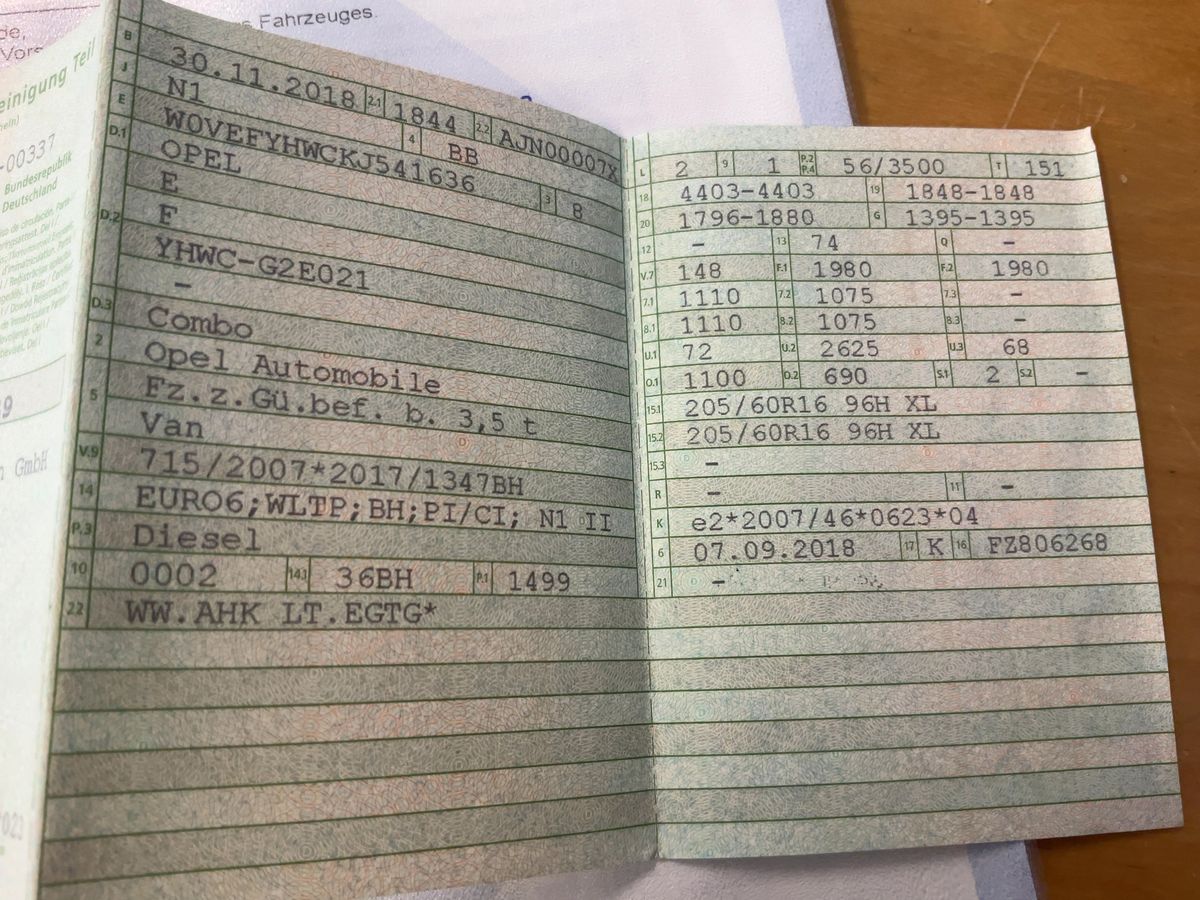 s Fahrzeuges.
de,
Vors
einigung Teil
-00337
Bundesrepublik
Deutschland
GmbH
B 30.11.2018 2.1 1844 2.2 AJN00007X
J N1 4 BB
E W0VEFYHWCKJ541636 3 8
D.1 OPEL
E
D.2 F
YHWC-G2E021
–
D.3 Combo
2 Opel Automobile
5 Fz.z.Gü.bef. b. 3,5 t
Van
V.9 715/2007*2017/1347BH
14 EURO6;WLTP;BH;PI/CI; N1 II
P.3 Diesel
10 0002 14.1 36BH P.1 1499
22 WW.AHK LT.EGTG*
L 2 9 1 P.2 P.4 56/3500 T 151
18 4403-4403 19 1848-1848
20 1796-1880 G 1395-1395
12 – 13 74 Q –
V.7 148 F.1 1980 F.2 1980
7.1 1110 7.2 1075 7.3 –
8.1 1110 8.2 1075 8.3 –
U.1 72 U.2 2625 U.3 68
O.1 1100 O.2 690 S.1 2 S.2 –
15.1 205/60R16 96H XL
15.2 205/60R16 96H XL
15.3 –
R – 11 –
K e2*2007/46*0623*04
6 07.09.2018 17 K 16 FZ806268
21 –